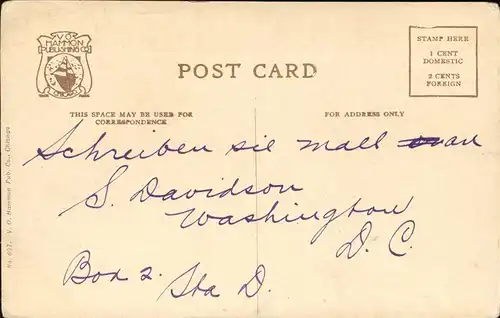 V.O.
HAMMON
PUBLISHING CO
CHICAGO
POST CARD
STAMP HERE
1 CENT
DOMESTIC
2 CENTS
FOREIGN
THIS SPACE MAY BE USED FOR
CORRESPONDENCE
FOR ADDRESS ONLY
Schreiben sie mall an
S. Davidson
Washington
D. C.
Box 2. Sta D.
V. O. Hammon Pub. Co., Chicago